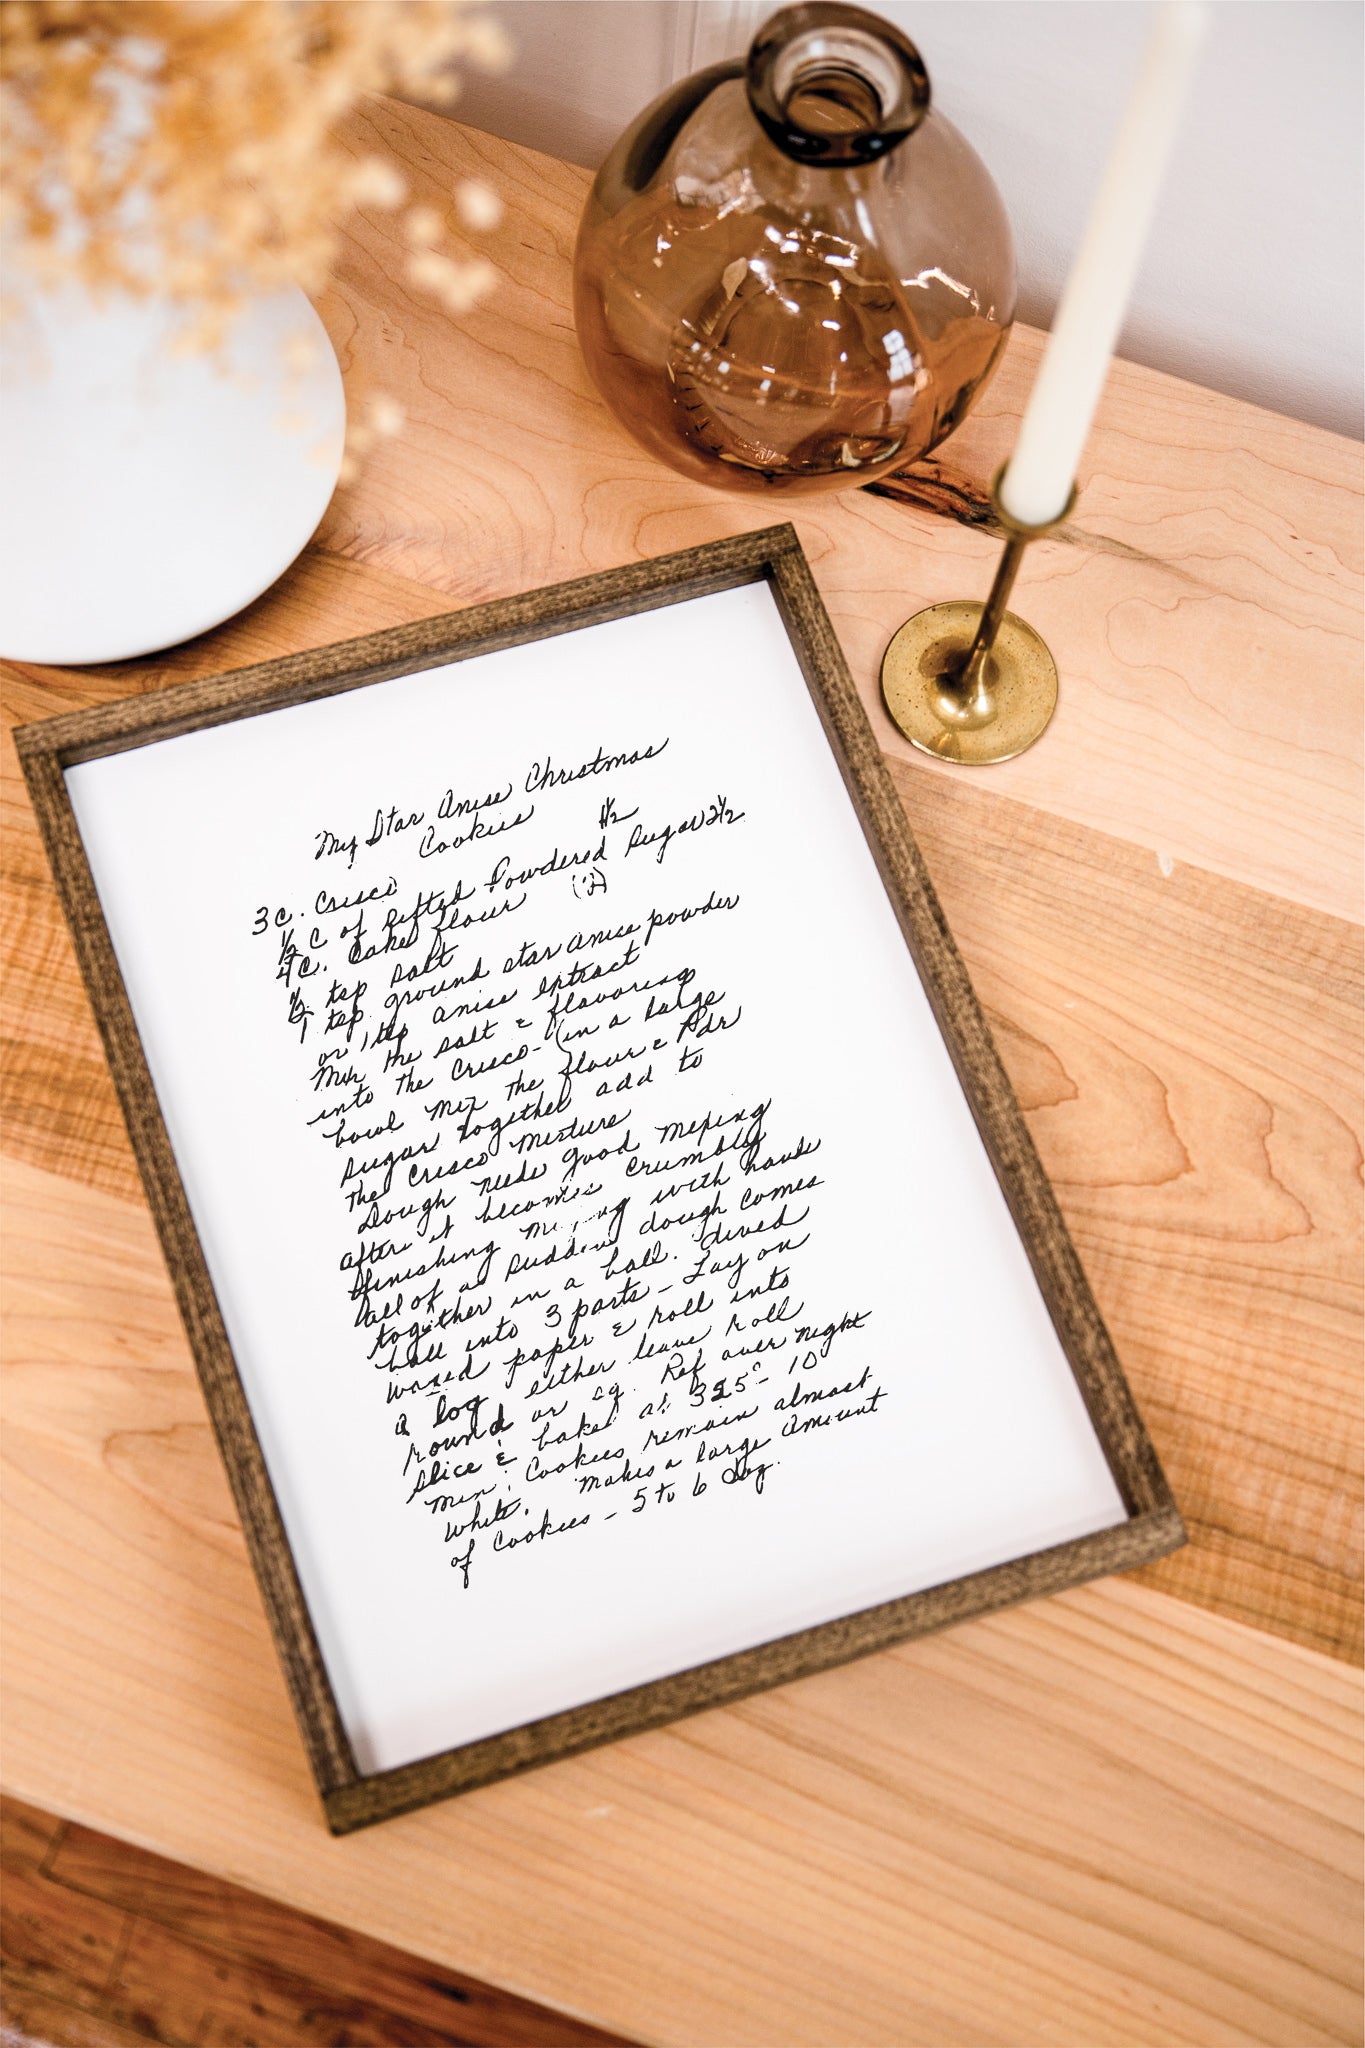 My Star Anise Christmas
Cookies 1½
3 C. Crisco
½ C of Sifted Powdered Sugar 2½
4 C. Cake flour (2)
½ tsp salt
1 tsp ground star anise powder
or 1 tsp anise extract
Mix the salt & flavoring
into the Crisco - (in a large
bowl mix the flour & Pdr
sugar together add to
the Crisco mixture
Dough needs good mixing
after it becomes crumbly
finishing mixing with hands
all of a sudden dough comes
together in a ball. Dived
ball into 3 parts - Lay on
waxed paper & roll into
a log either leave roll
round or sq. Ref over night
slice & bake at 325° - 10
min. Cookies remain almost
white. Makes a large amount
of cookies - 5 to 6 Doz.